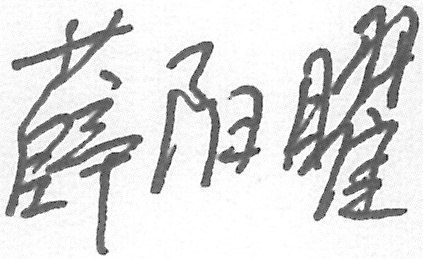 薛阳曜